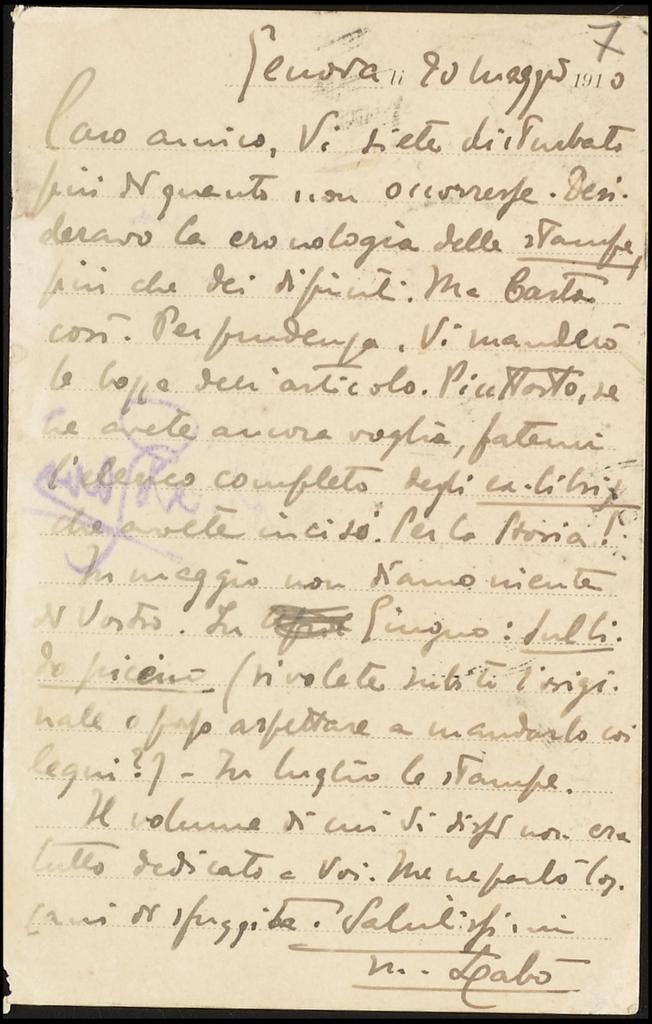 7
Genova li 20 maggio 1910
Caro amico, Vi siete disturbato
più di quanto non occorresse. Desi-
deravo la cronologia delle stampe,
più che dei dipinti. Ma basta
così. Per prudenza, Vi manderò
le bozze dell'articolo. Piuttosto, se
ne avete ancora voglia, fatemi
l'elenco completo degli ex-libris
che avete inciso. Per la storia!
In maggio non diamo niente
di Vostro. In Giugno: Sul li-
do piceno (rivolete subito l'origi-
nale o posso aspettare a mandarlo coi
legni?) - In luglio le stampe.
Il volume di cui Vi dissi non era
tutto dedicato a Voi. Me ne parlò
di sfuggita. Salutissimi